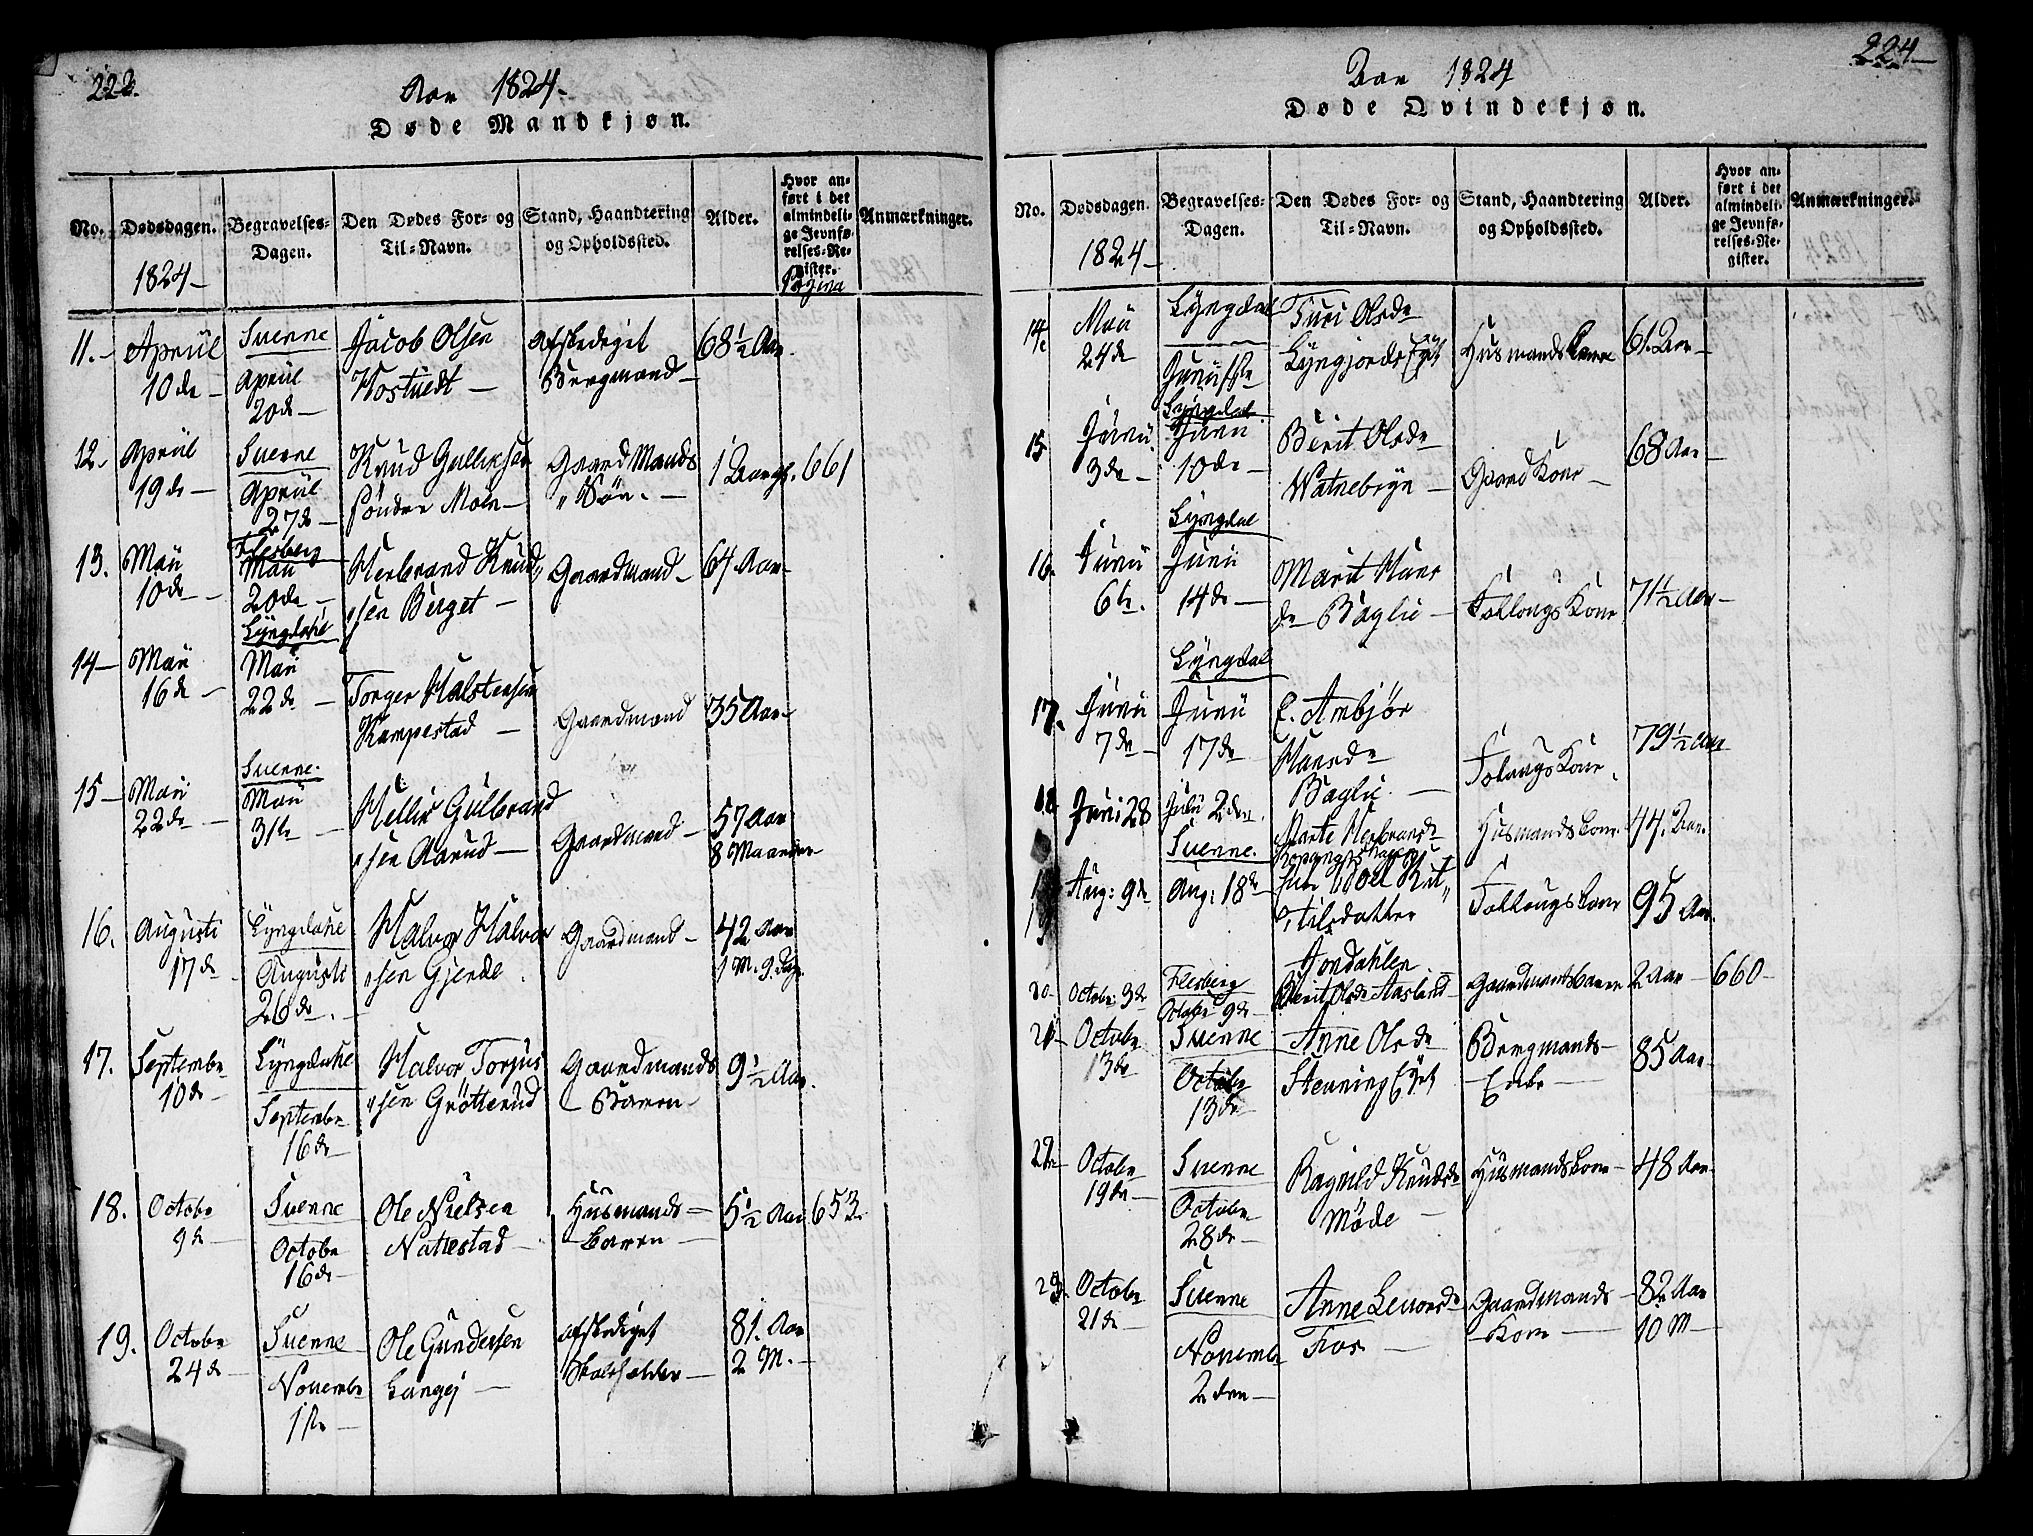 222.
Aar 1824.
Døde Mandkjøn.
No.
Dødsdagen.
1824
Begravelses-
Dagen.
Den Dødes For- og
Til-Navn.
Stand, Haandtering
og Opholdssted.
Alder.
Hvor an-
ført i det
almindeli-
ge Jevnfø-
relses-Re-
gister.
Pagina
Anmærkninger.
11. Apriil 10de
Suenne Apriil 20de
Jacob Olsen Hostuedt
afskediget Bergmand
68½ Aar
12. Apriil 19de
Suenne Apriil 27de
Knud Gulliksen Sønder Moen
Gaard Mands Søn
1 Aar
661
13. Maii 10de
Flesberg Maii 20de
Herbrand Knudsen Berget
Gaardmand
64 Aar
14 Maii 16de
Lyngdahl Maii 22de
Torger Halstensen Kampestad
Gaardmand
35 Aar
15 Maii 22de
Suenne. Maii 31te
Hellir Gulbrandsen Aarud
Gaardmand
57 Aar 8 Maaneder
16. Augusti 17de
Lyngdahl Augusti 26de
Halvor Halvorsen Gjerde
Gaardmand
42 Aar 1 M. 9 Dage
17. Septembr 10de
Lyngdahl Septembr 16de
Halvor Torjusen Grötterud
Gaardmands Barn
9½ Aar.
18. Octobr 9de
Suenne Octobr 16de
Ole Nielsen Nattestad
Huusmands Barn
5½ Aar
653
19. Octobr 24de
Suenne Novembr 1te
Ole Gundersen Langej
afskediget Skoleholder
81. Aar 2 M.
224
Aar 1824
Døde Qvindekjøn.
No.
Dødsdagen.
1824
Begravelses-
Dagen.
Den Dødes For- og
Til-Navn.
Stand, Haandtering
og Opholdssted.
Alder.
Hvor an-
ført i det
almindeli-
ge Jevnfø-
relses-Re-
gister.
Anmærkninger.
14 Maii 24de
Lyngdal Junii
Turi Olsdr Lyngjords Ejet
Husmands Kone
61. Aar
15 Junii 3de
Lyngdal Junii 10de
Berit Olsdr Watnebryn
Gaard Kone
68 Aar
16. Junii 6te
Lyngdal Junii 14de
Marit Hansdr Baglie
Follougs Kone
71½ Aar
17. Junii 7de
Lyngdal Junii 17de
E. Ambjør Hansdr Baglie.
Follougs Kone
79½ Aar
18 Juni 28
Julii 2den
Marte Herbrandsdr
Husmands Kone
44. Aar
19 Aug: 9de
Suenne. Aug: 18de
Kittilsdatter Jondahlen
Follougs Kone
95 Aar.
20 Octobr 3de
Flesberg Octobr 9de
Berit Olsdr Aasland
Gaardmands Barn
2 Aar
660
21 Octobr 13de
Suenne Octobr 13de
Anne Olsdr Stenning Ejet
Bergmands Enke
85 Aar
22 Octobr 19de
Suenne Octobr 28de
Ragnild Knudsdr Møde
Huusmands Kone
48 Aar
23. Octobr 21de
Suenne Novembr 2den
Anne Leuorsdr Fros
Gaardmands Kone
82 Aar 10 M